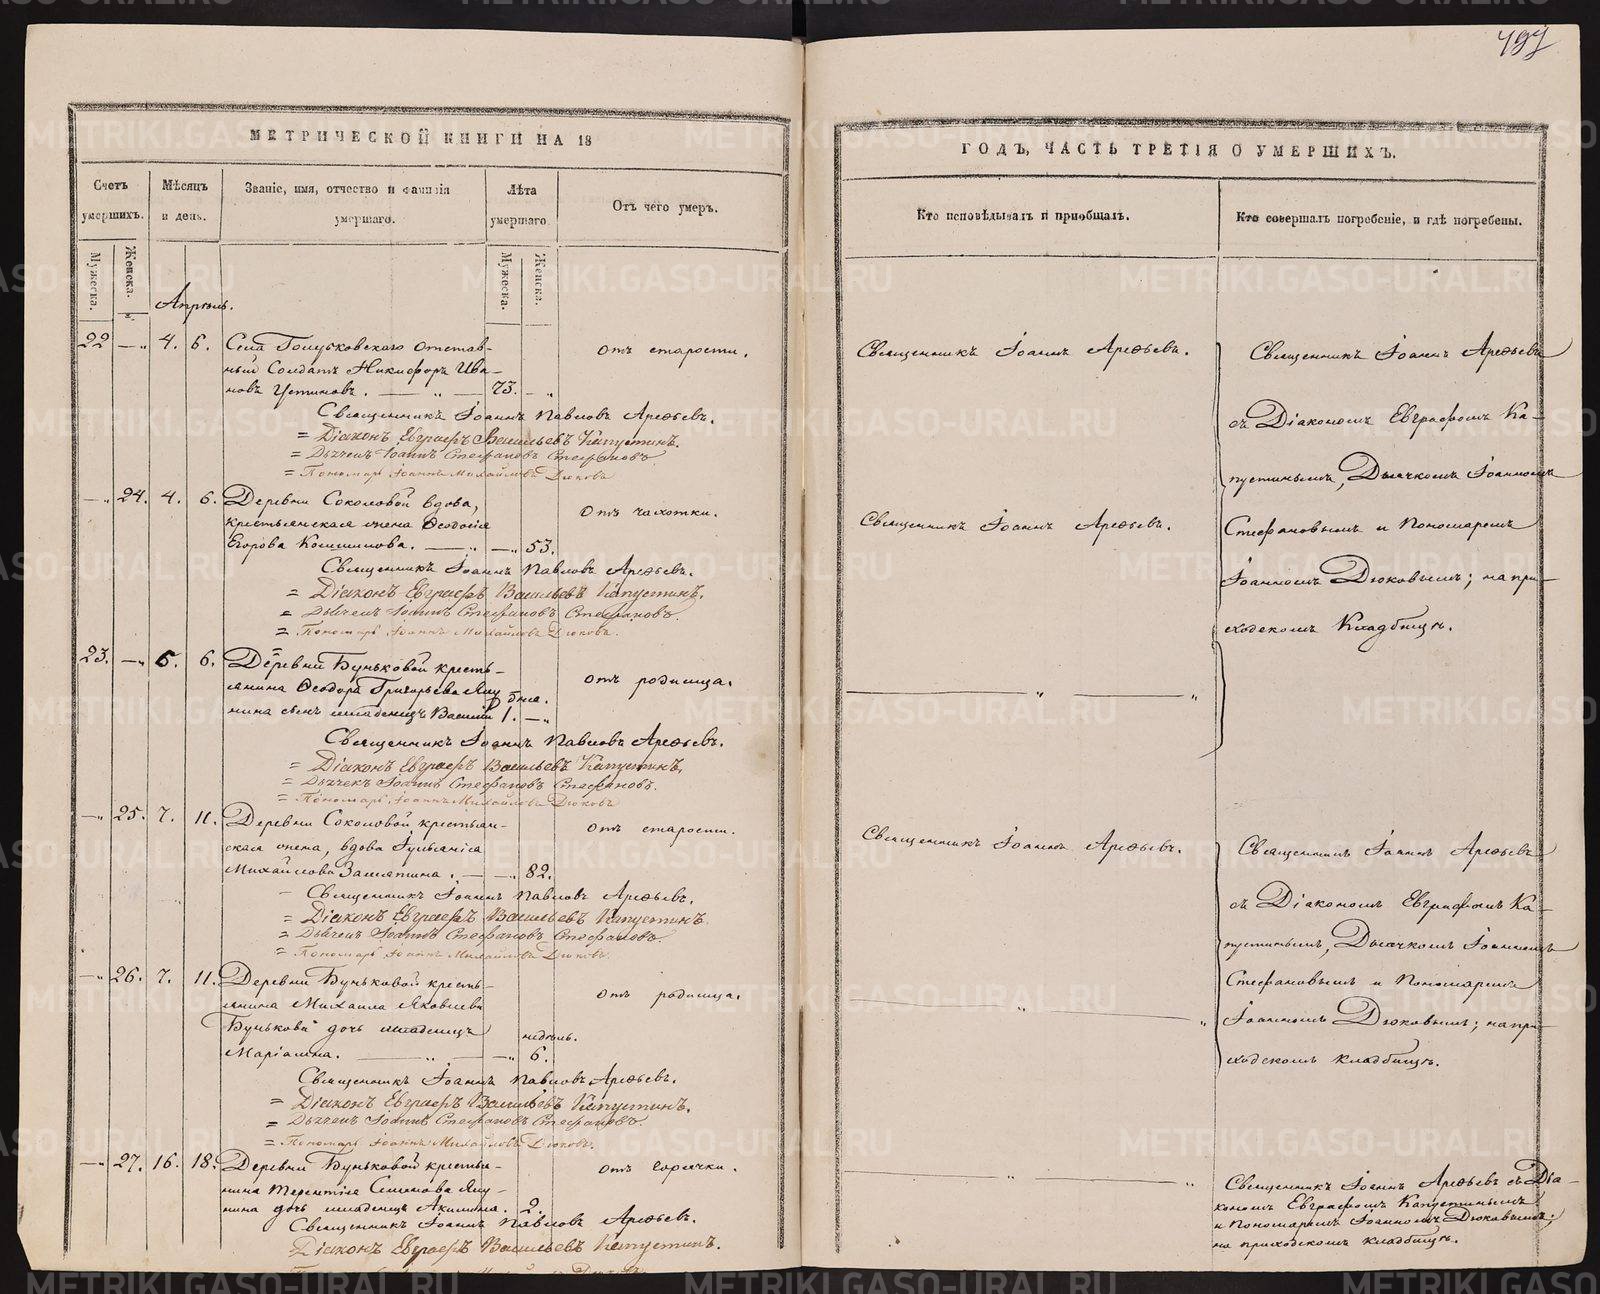 497
МЕТРИЧЕСКОЙ КНИГИ НА 18
Счетъ умершихъ.
Мужеска.
Женска.
Мѣсяцъ и день.
Званіе, имя, отчество и фамилія умершаго.
Лѣта умершаго.
Мужеска.
Женска.
Отъ чего умеръ.
Апрѣль.
22 — „ 4. 6. Села Голубковскаго отстав-
ный Солдатъ Никифоръ Ива-
новъ Устиновъ. — „ — 73. - „
отъ старости.
Священникъ Іоаннъ Павловъ Арефьевъ.
= Діаконъ Евграфъ Васильевъ Капустинъ.
= Дьячекъ Іоаннъ Стефановъ Стефановъ.
= Пономарь Іоаннъ Михайловъ Дюковъ
— „ 24. 4. 6. Деревни Соколовой вдова,
крестьянская жена Ѳеодосія
Егорова — „ — „ 53.
Отъ чахотки.
Священникъ Іоаннъ Павловъ Арефьевъ.
= Діаконъ Евграфъ Васильевъ Капустинъ.
= Дьячекъ Іоаннъ Стефановъ Стефановъ.
= Пономарь Іоаннъ Михайловъ Дюковъ.
23. — „ 5. 6. Деревни Буньковой кресть-
янина Ѳеодора Григорьева Яку-
нина сынъ младенецъ Василій дня. 1. — „
отъ родимца.
Священникъ Іоаннъ Павловъ Арефьевъ.
= Діаконъ Евграфъ Васильевъ Капустинъ.
= Дьячекъ Іоаннъ Стефановъ Стефановъ.
= Пономарь Іоаннъ Михайловъ Дюковъ
— „ 25. 7. 11. Деревни Соколовой крестьян-
ская жена, вдова Іуліанія
Михайлова . — — „ 82.
отъ старости.
Священникъ Іоаннъ Павловъ Арефьевъ.
= Діаконъ Евграфъ Васильевъ Капустинъ.
= Дьячекъ Іоаннъ Стефановъ Стефановъ.
= Пономарь Іоаннъ Михайловъ Дюковъ.
— „ 26. 7. 11. Деревни Буньковой кресть-
янина Михаила Яковлева
Бунькова дочь младенецъ недѣль.
Маріамна. — „ — — „ 6.
отъ родимца.
Священникъ Іоаннъ Павловъ Арефьевъ.
= Діаконъ Евграфъ Васильевъ Капустинъ.
= Дьячекъ Іоаннъ Стефановъ Стефановъ.
= Пономарь Іоаннъ Михайловъ Дюковъ.
— „ 27. 16. 18. Деревни Буньковой крестья-
нина Терентія Семенова Яку-
нина дочь младенецъ Акилина. 2.
отъ горячки.
Священникъ Іоаннъ Павловъ Арефьевъ.
Діаконъ Евграфъ Васильевъ Капустинъ.
ГОДЪ, ЧАСТЬ ТРЕТІЯ О УМЕРШИХЪ.
Кто исповѣдывалъ и пріобщалъ.
Кто совершалъ погребеніе, и гдѣ погребены.
Священникъ Іоаннъ Арефьевъ.
Священникъ Іоаннъ Арефьевъ.
— „ — „
Священникъ Іоаннъ Арефьевъ.
— „ — „
— „ — „
Священникъ Іоаннъ Арефьевъ
съ Діакономъ Евграфомъ Ка-
пустинымъ, Дьячкомъ Іоанномъ
Стефановымъ и Пономаремъ
Іоанномъ Дюковымъ; на при-
ходскомъ Кладбищѣ.
Священникъ Іоаннъ Арефьевъ
съ Діакономъ Евграфомъ Ка-
пустинымъ, Дьячкомъ Іоанномъ
Стефановымъ и Пономаремъ
Іоанномъ Дюковымъ; на при-
ходскомъ кладбищѣ.
Священникъ Іоаннъ Арефьевъ съ Діа-
кономъ Евграфомъ Капустинымъ
и Пономаремъ Іоанномъ Дюковымъ;
на приходскомъ кладбищѣ.
METRIKI.GASO-URAL.RU